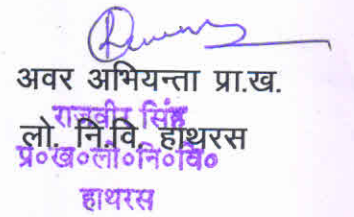 अवर अभियन्ता प्रा.ख.
राजवीर सिंह
लो. नि.वि. हाथरस
प्रे०ख०लो०नि०वि०
हाथरस